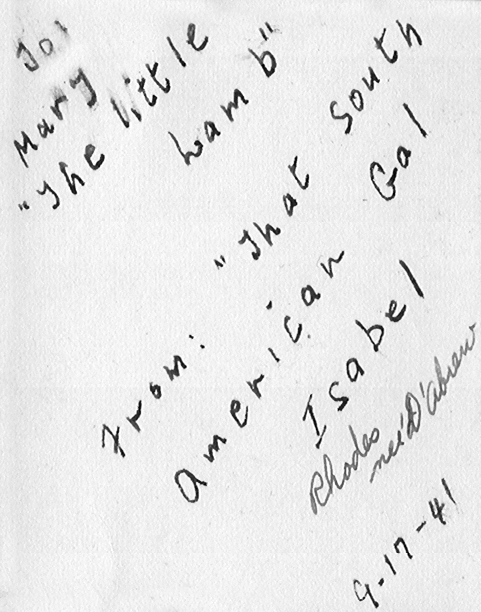 To:
Mary
"The little
Lamb"
From: "That South
American Gal
Isabel
Rhodes
neé D'Abrew
9-17-41